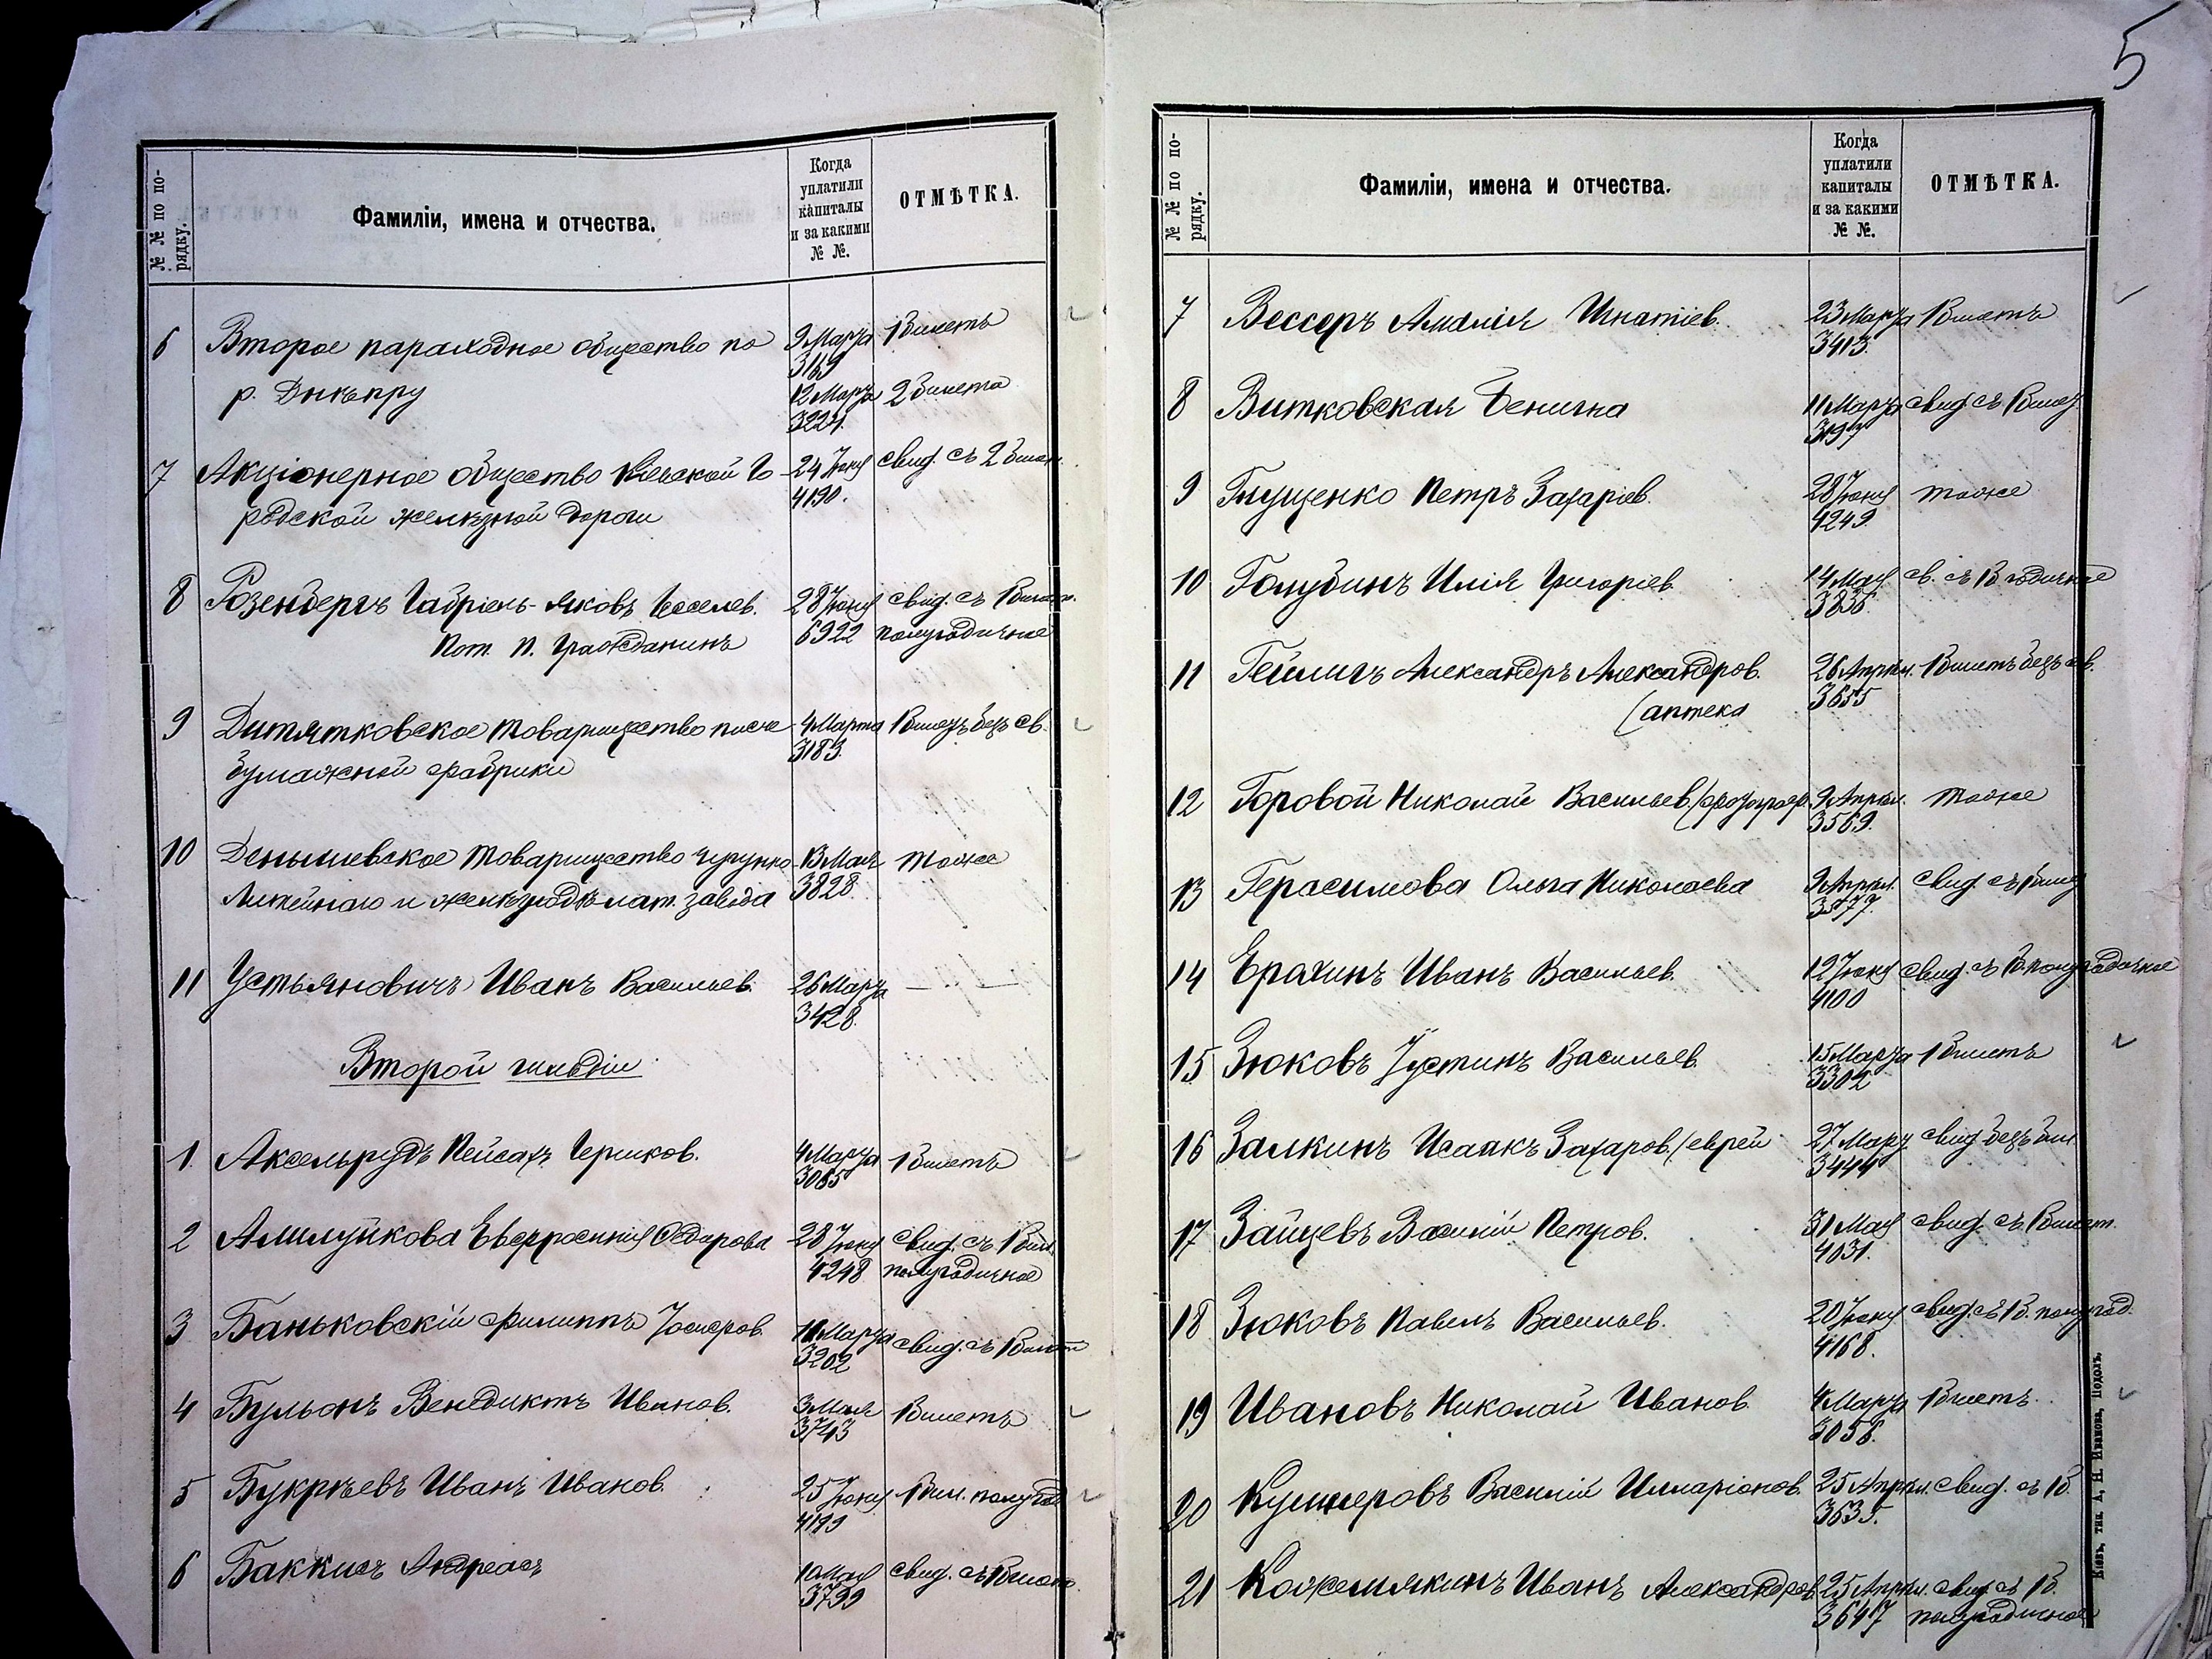 5
№ № по по-
рядку.
Фамиліи, имена и отчества.
Когда
уплатили
капиталы
и за какими
№ №.
ОТМѢТКА.
6 Второе параходное общество по 9 Марта 1 билетъ
3169
р. Днѣпру 12 Марта 2 билета
3224
7 Акціонерное общество Кіевской Го- 24 Іюня свид. съ 2 билет.
4190.
родской желѣзной дороги
8 Розенбергъ Габріель-Яковъ Іоселев. 28 Іюня свид. съ 1 билет.
Пот. П. Гражданинъ 6922 полугодичное
9 Дитятковское товарищество писче- 4 Марта 1 билетъ безъ св.
3183.
бумажной фабрики
10 Денышевское товарищество чугунно- 13 Мая тоже
Литейнаго и желѣзодѣлат. завода 3828.
11 Устьяновичъ Иванъ Васильев. 26 Марта — " —
3428.
Второй гильдіи
1. Аксельрудъ Пейсахъ Гершков. 4 Марта 1 билетъ
3085
2 Амилуйкова Евфросинія Ѳедорова 28 Іюня свид. съ 1 бил.
4248 полугодичное
3 Баньковскій Филиппъ Іосифов. 11 Марта свид. съ 1 билет
3202
4 Бульонъ Венедиктъ Иванов. 3 Мая 1 билетъ
3743
5 Букрѣевъ Иванъ Иванов. 25 Іюня 1 бил. полугод
4199
6 Баккисъ Андреасъ 10 Мая свид. съ 1 билет.
3799
№ № по по-
рядку.
Фамиліи, имена и отчества.
Когда
уплатили
капиталы
и за какими
№ №.
ОТМѢТКА.
7 Вессеръ Амалія Игнатіев. 23 Марта 1 билетъ
3413.
8 Витковская Бенигна 11 Марта свид. съ 1 билет.
3197
9 Глущенко Петръ Захаріев. 28 Іюня тоже
4249.
10 Голубинъ Илія Григоріев. 14 Мая св. съ 1 б. годичное
3836
11 Гейлигъ Александръ Александров. 26 Апрѣл. 1 билетъ безъ св.
(аптека 3655
12 Горовой Николай Васильев. (фотограф. 9 Апрѣл. тоже
3569.
13 Герасимова Ольга Николаева 9 Апрѣл. свид. съ 1 билет
3577.
14 Ерахинъ Иванъ Васильев. 12 Іюня свид. съ 1 б. полугодичное
4100
15 Зюковъ Іустинъ Васильев. 15 Марта 1 билетъ
3302
16 Залкинъ Исаакъ Захаров. (еврей 27 Март свид. безъ бил.
3444
17 Зайцевъ Василій Петров. 31 Мая свид. съ 1 билет.
4031.
18 Зюковъ Павелъ Васильев. 20 Іюня свид. съ 1 б. полугод.
4168.
19 Ивановъ Николай Иванов. 4 Марта 1 билетъ.
3056.
20 Кушнеровъ Василій Илларіонов. 25 Апрѣл. свид. съ 1 б.
3635.
21 Кожемякинъ Иванъ Александров. 25 Апрѣл. свид. съ 1 б.
3647 полугодичное
Кіевъ, тип. А, Н. Иванова, Подолъ.